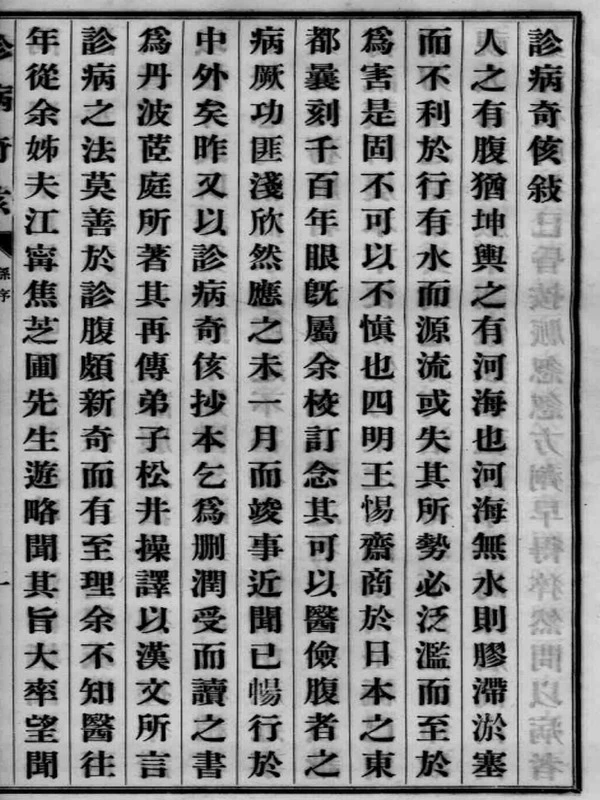 診病奇侅敍
人之有腹猶坤輿之有河海也河海無水則膠滯淤塞
而不利於行有水而源流或失其所勢必泛濫而至於
爲害是固不可以不慎也四明王惕齋商於日本之東
都曩刻千百年眼旣屬余校訂念其可以醫儉腹者之
病厥功匪淺欣然應之未一月而竣事近聞已暢行於
中外矣昨又以診病奇侅抄本乞爲删潤受而讀之書
爲丹波茝庭所著其再傳弟子松井操譯以漢文所言
診病之法莫善於診腹頗新奇而有至理余不知醫往
年從余姊夫江甯焦芝圃先生遊略聞其旨大率望聞
診病奇侅
孫序
一